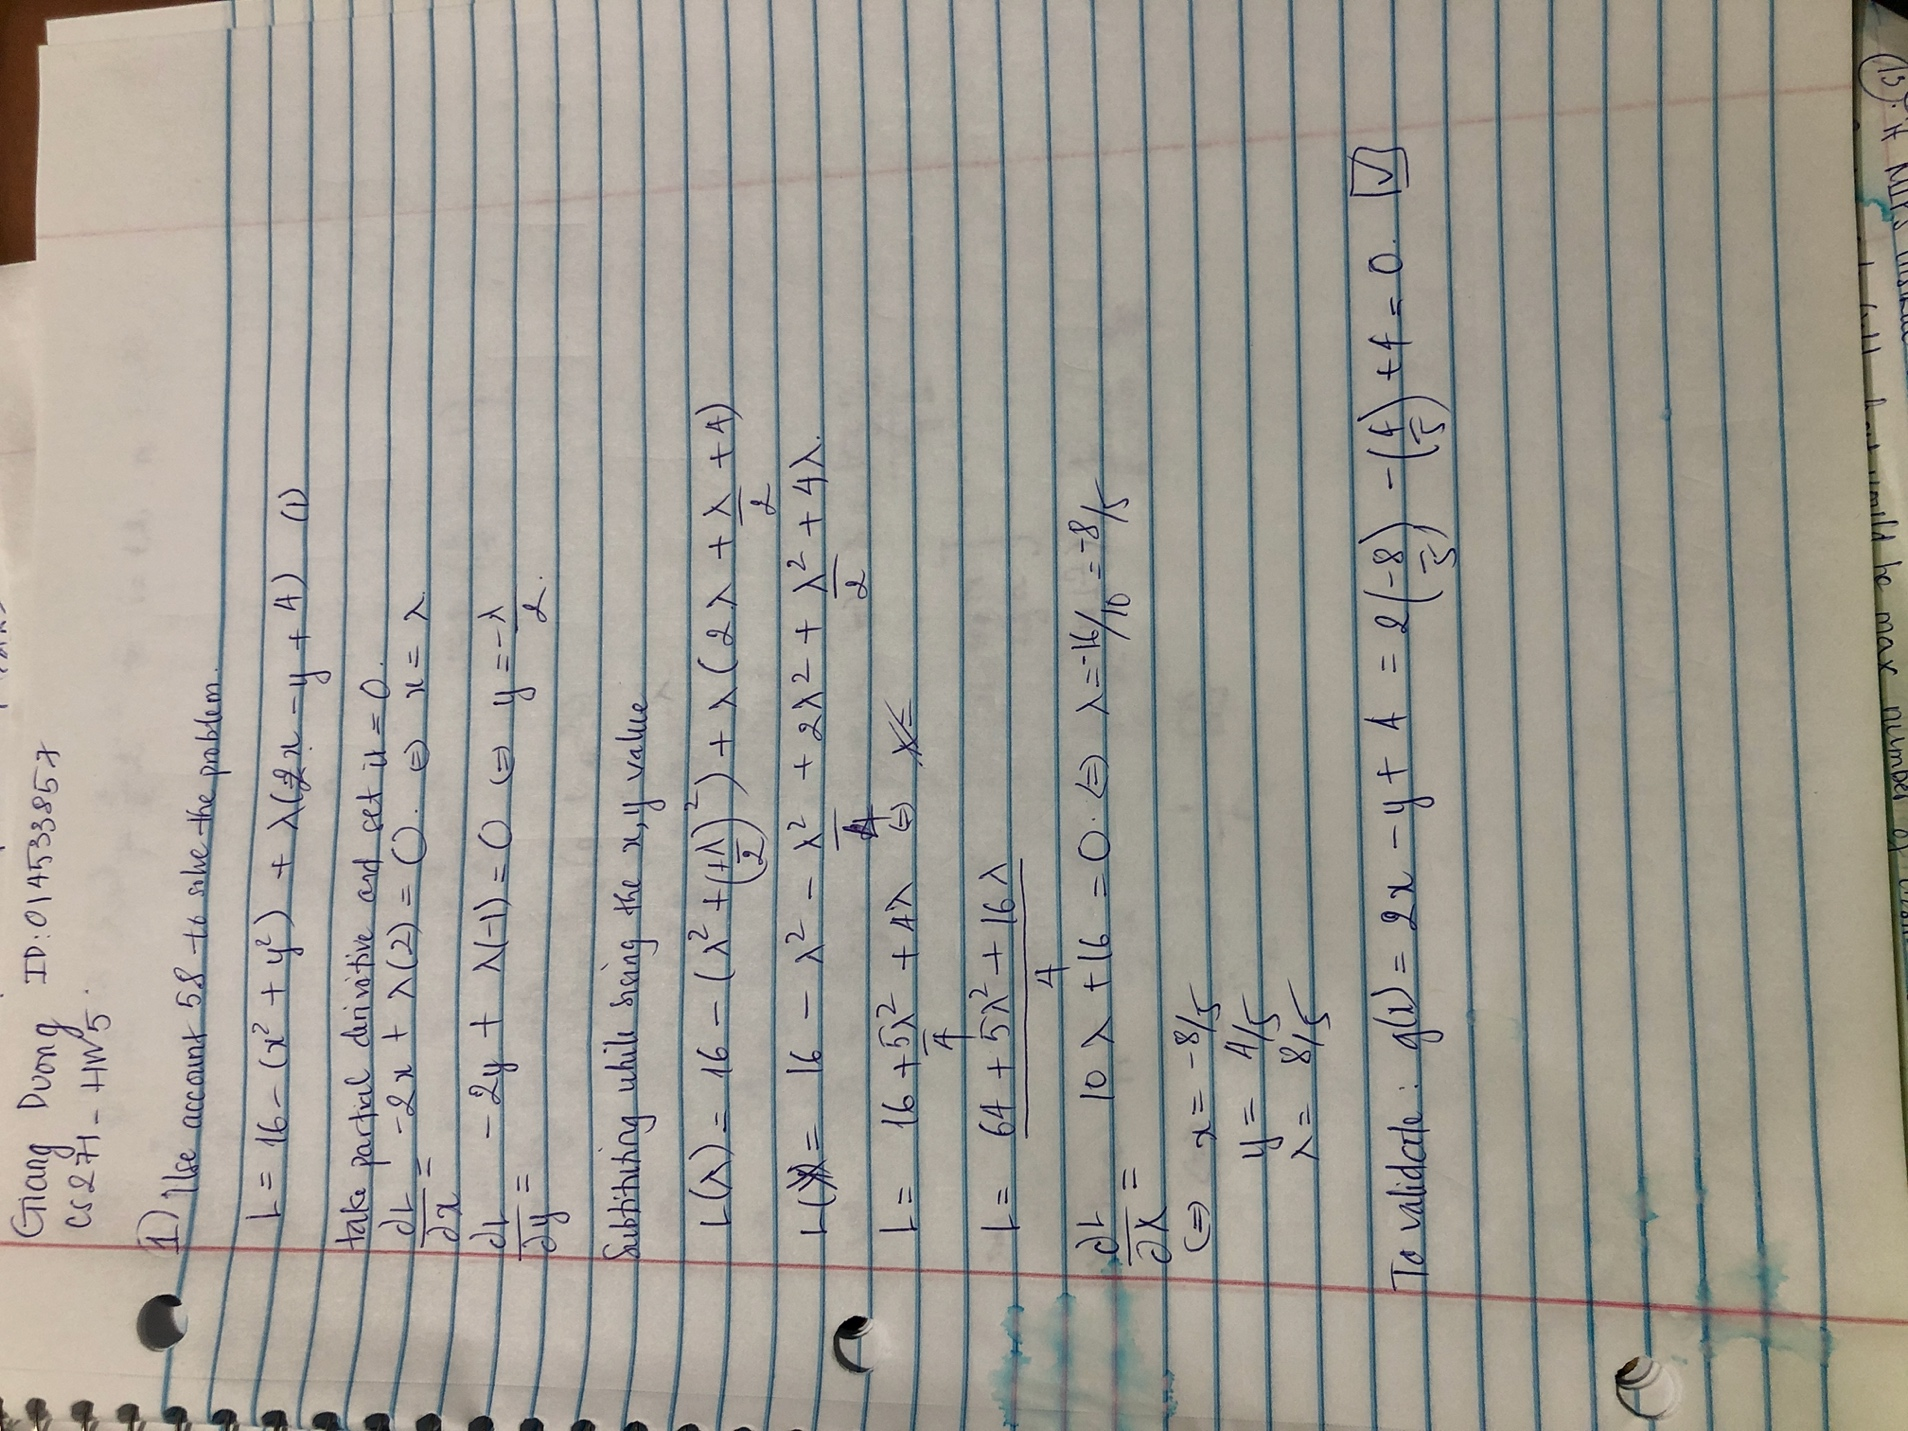 Giang Duong ID: 014533857
CS271 - HW5.
1) Use account 5.8 to solve the problem.
L = 16 - (x² + y²) + λ(2x - y + 4) (1)
take partial derivitive and set it = 0.
∂L/∂x = -2x + λ(2) = 0. (=) x = λ
∂L/∂y = -2y + λ(-1) = 0 (=) y = -λ/2.
Substituting while sieing the x, y value
L(λ) = 16 - (λ² + (+λ/2)²) + λ(2λ + λ/2 + 4)
L(λ) = 16 - λ² - λ²/4 + 2λ² + λ²/2 + 4λ.
L = 16 + 5λ²/4 + 4λ (=)
L = 64 + 5λ² + 16λ/4
∂L/∂λ = 10λ + 16 = 0. (=) λ = -16/10 = -8/5
(=) x = -8/5
y = 4/5
λ = 8/5
To validate: g(x) = 2x - y + 4 = 2(-8/5) - (4/5) + 4 = 0. ✓
13).